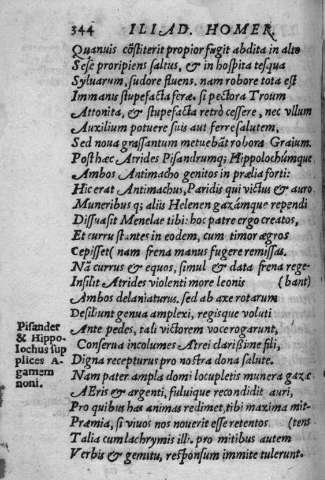 344 ILIAD. HOMER.
Quamuis cõstiterit propior fugit abdita in alto
Sese proripiens saltus, & in hospita tesqua
Syluarum, sudore fluens. nam robore tota est
Immanis stupefacta feræ. si pectora Troum
Attonita, & stupefacta retrò cessere, nec vllum
Auxilium potuere suis aut ferre salutem,
Sed noua grassantum metuebãt robora Graium.
Post hæc Atrides Pisandrumq; Hippolochúmque
Ambos Antimacho genitos in prælia forti:
Hic erat Antimachus, Paridis qui victus & auro
Muneribus q; aliis Helenen gazámque rependi
Dissuasit Menelae tibi: hoc patre ergo creatos,
Et curru stantes in eodem, cum timor ægros
Cepisset (nam frena manus fugere remissas.
Nã currus & equos, simul & data frena rege-
Insilit Atrides violenti more leonis (bant)
Ambos delaniaturus. sed ab axe rotarum
Desiliunt genua amplexi, regisque voluti
Ante pedes, tali victorem voce rogarunt,
Conserua incolumes Atrei clarissime fili,
Digna recepturus pro nostra dona salute.
Nam pater ampla domi locupletis munera gazæ
AEris & argenti, fuluique recondidit auri,
Pro quibus has animas redimet, tibi maxima mit-
Præmia, si viuos nos nouerit esse retentos (tens
Talia cum lachrymis illi. pro mitibus autem
Verbis & gemitu, responsum immite tulerunt.
Pisander
& Hippo-
lochus sup
plices A-
gamem
noni.